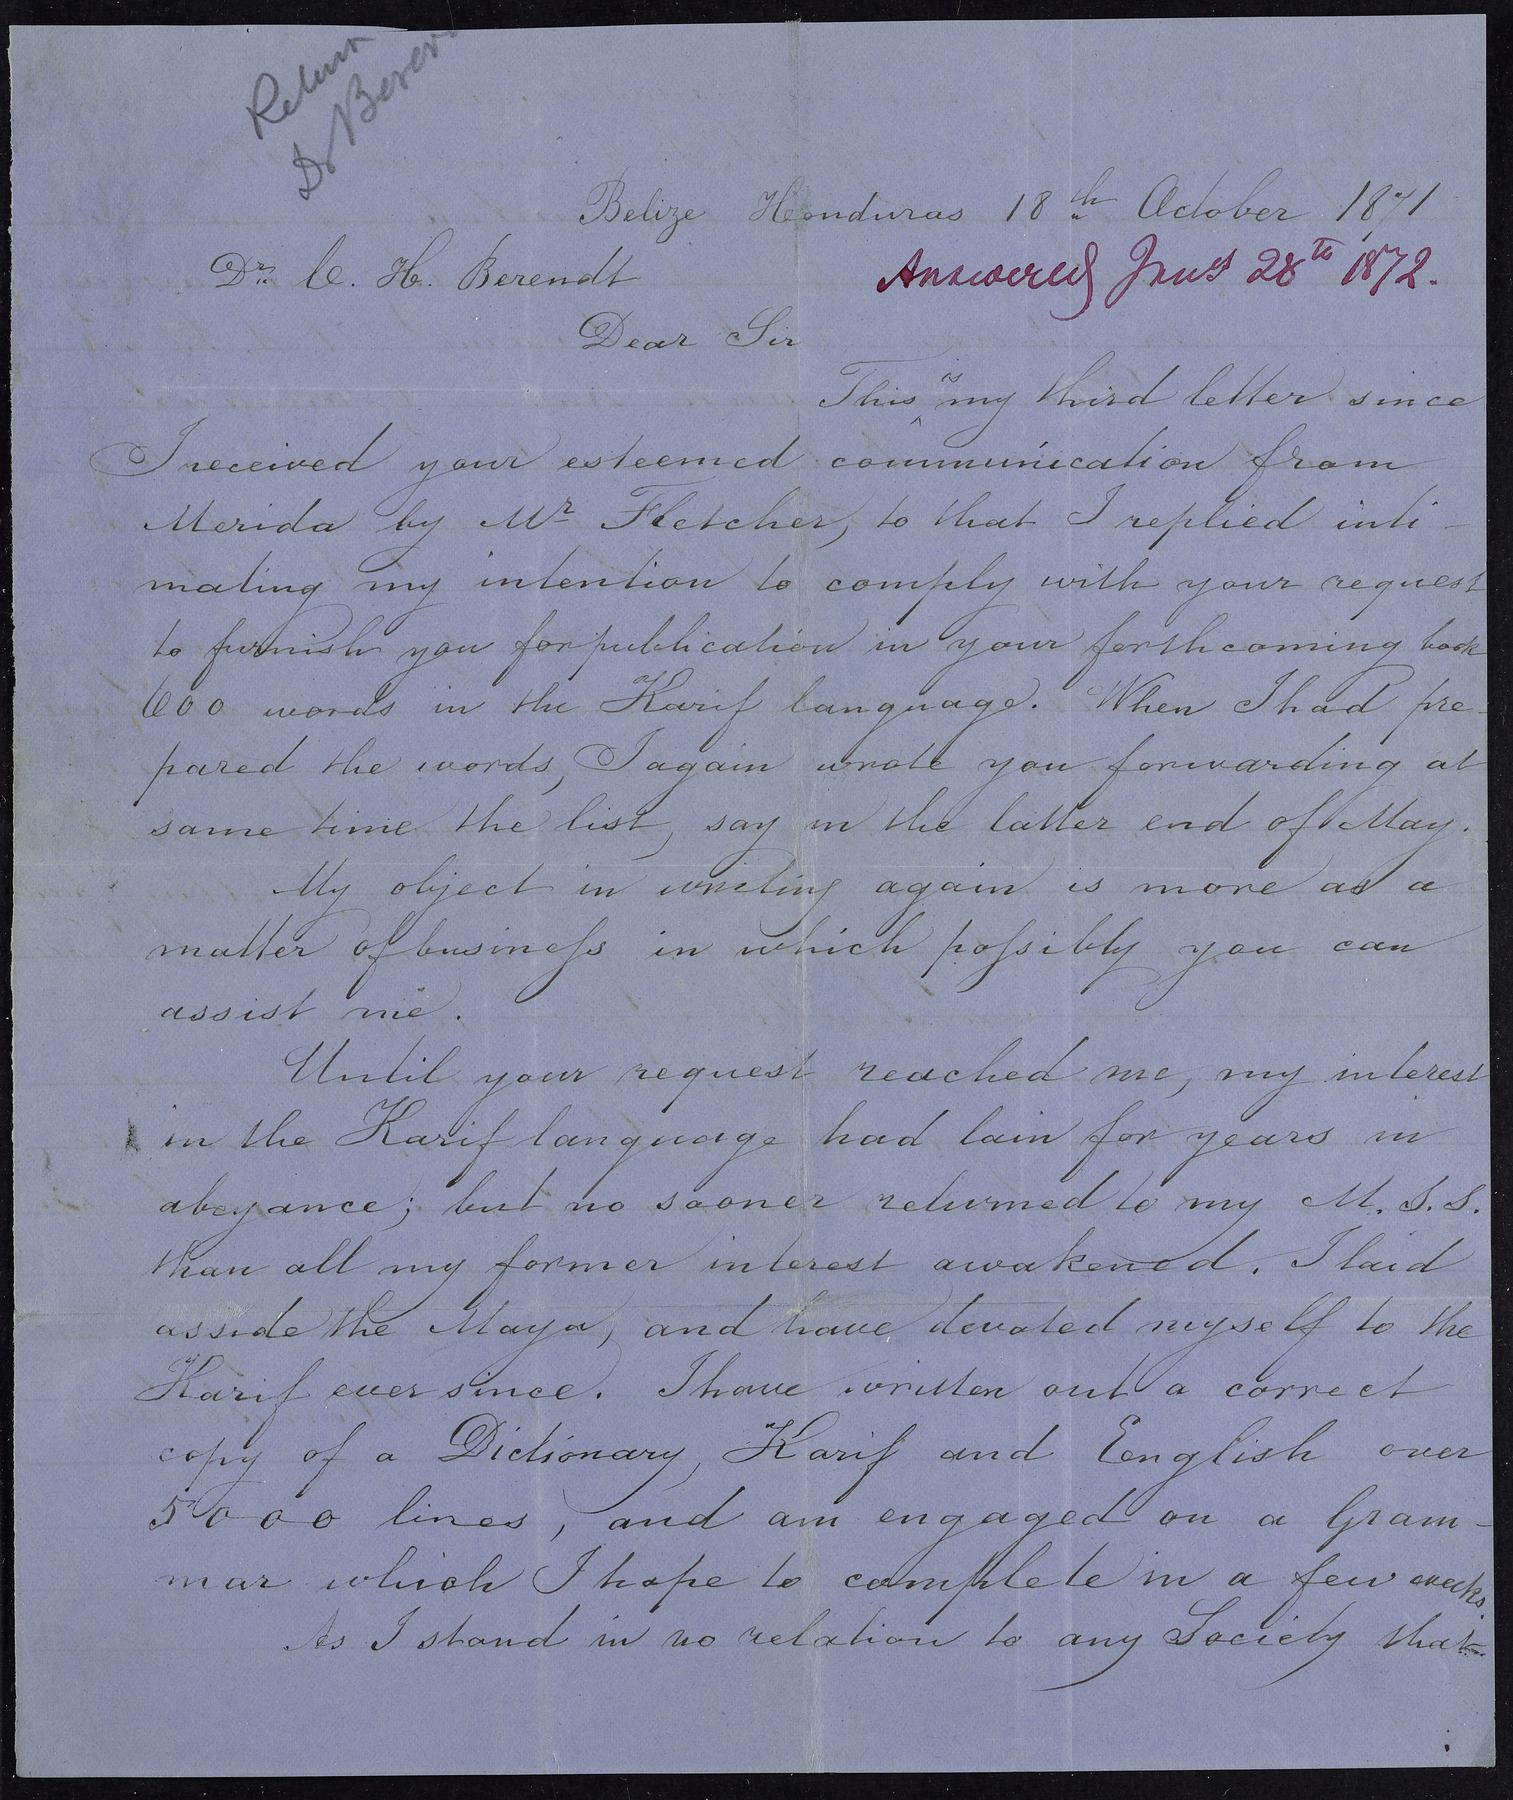 Return
Dr Beren
Belize Honduras 18th October 1871
Dr. C. H. Berendt
Answered Janry 28th 1872.
Dear Sir
This is my third letter since
I received your esteemed communication from
Merida by Mr Fletcher, to that I replied inti-
mating my intention to comply with your request
to furnish you for publication in your forthcoming book
600 words in the Karif language. When I had pre-
pared the words, I again wrote you forwarding at
same time the list, say in the latter end of May.
My object in writing again is more as a
matter of business in which possibly you can
assist me.
Until your request reached me, my interest
in the Karif language had lain for years in
abeyance; but no sooner returned to my M.S.S.
than all my former interest awakened. I laid
asside the Maya, and have devoted myself to the
Karif ever since. I have written out a correct
copy of a Dictionary, Karif and English over
5000 lines, and am engaged on a Gram-
mar which I hope to complete in a few weeks.
As I stand in no relation to any Society that